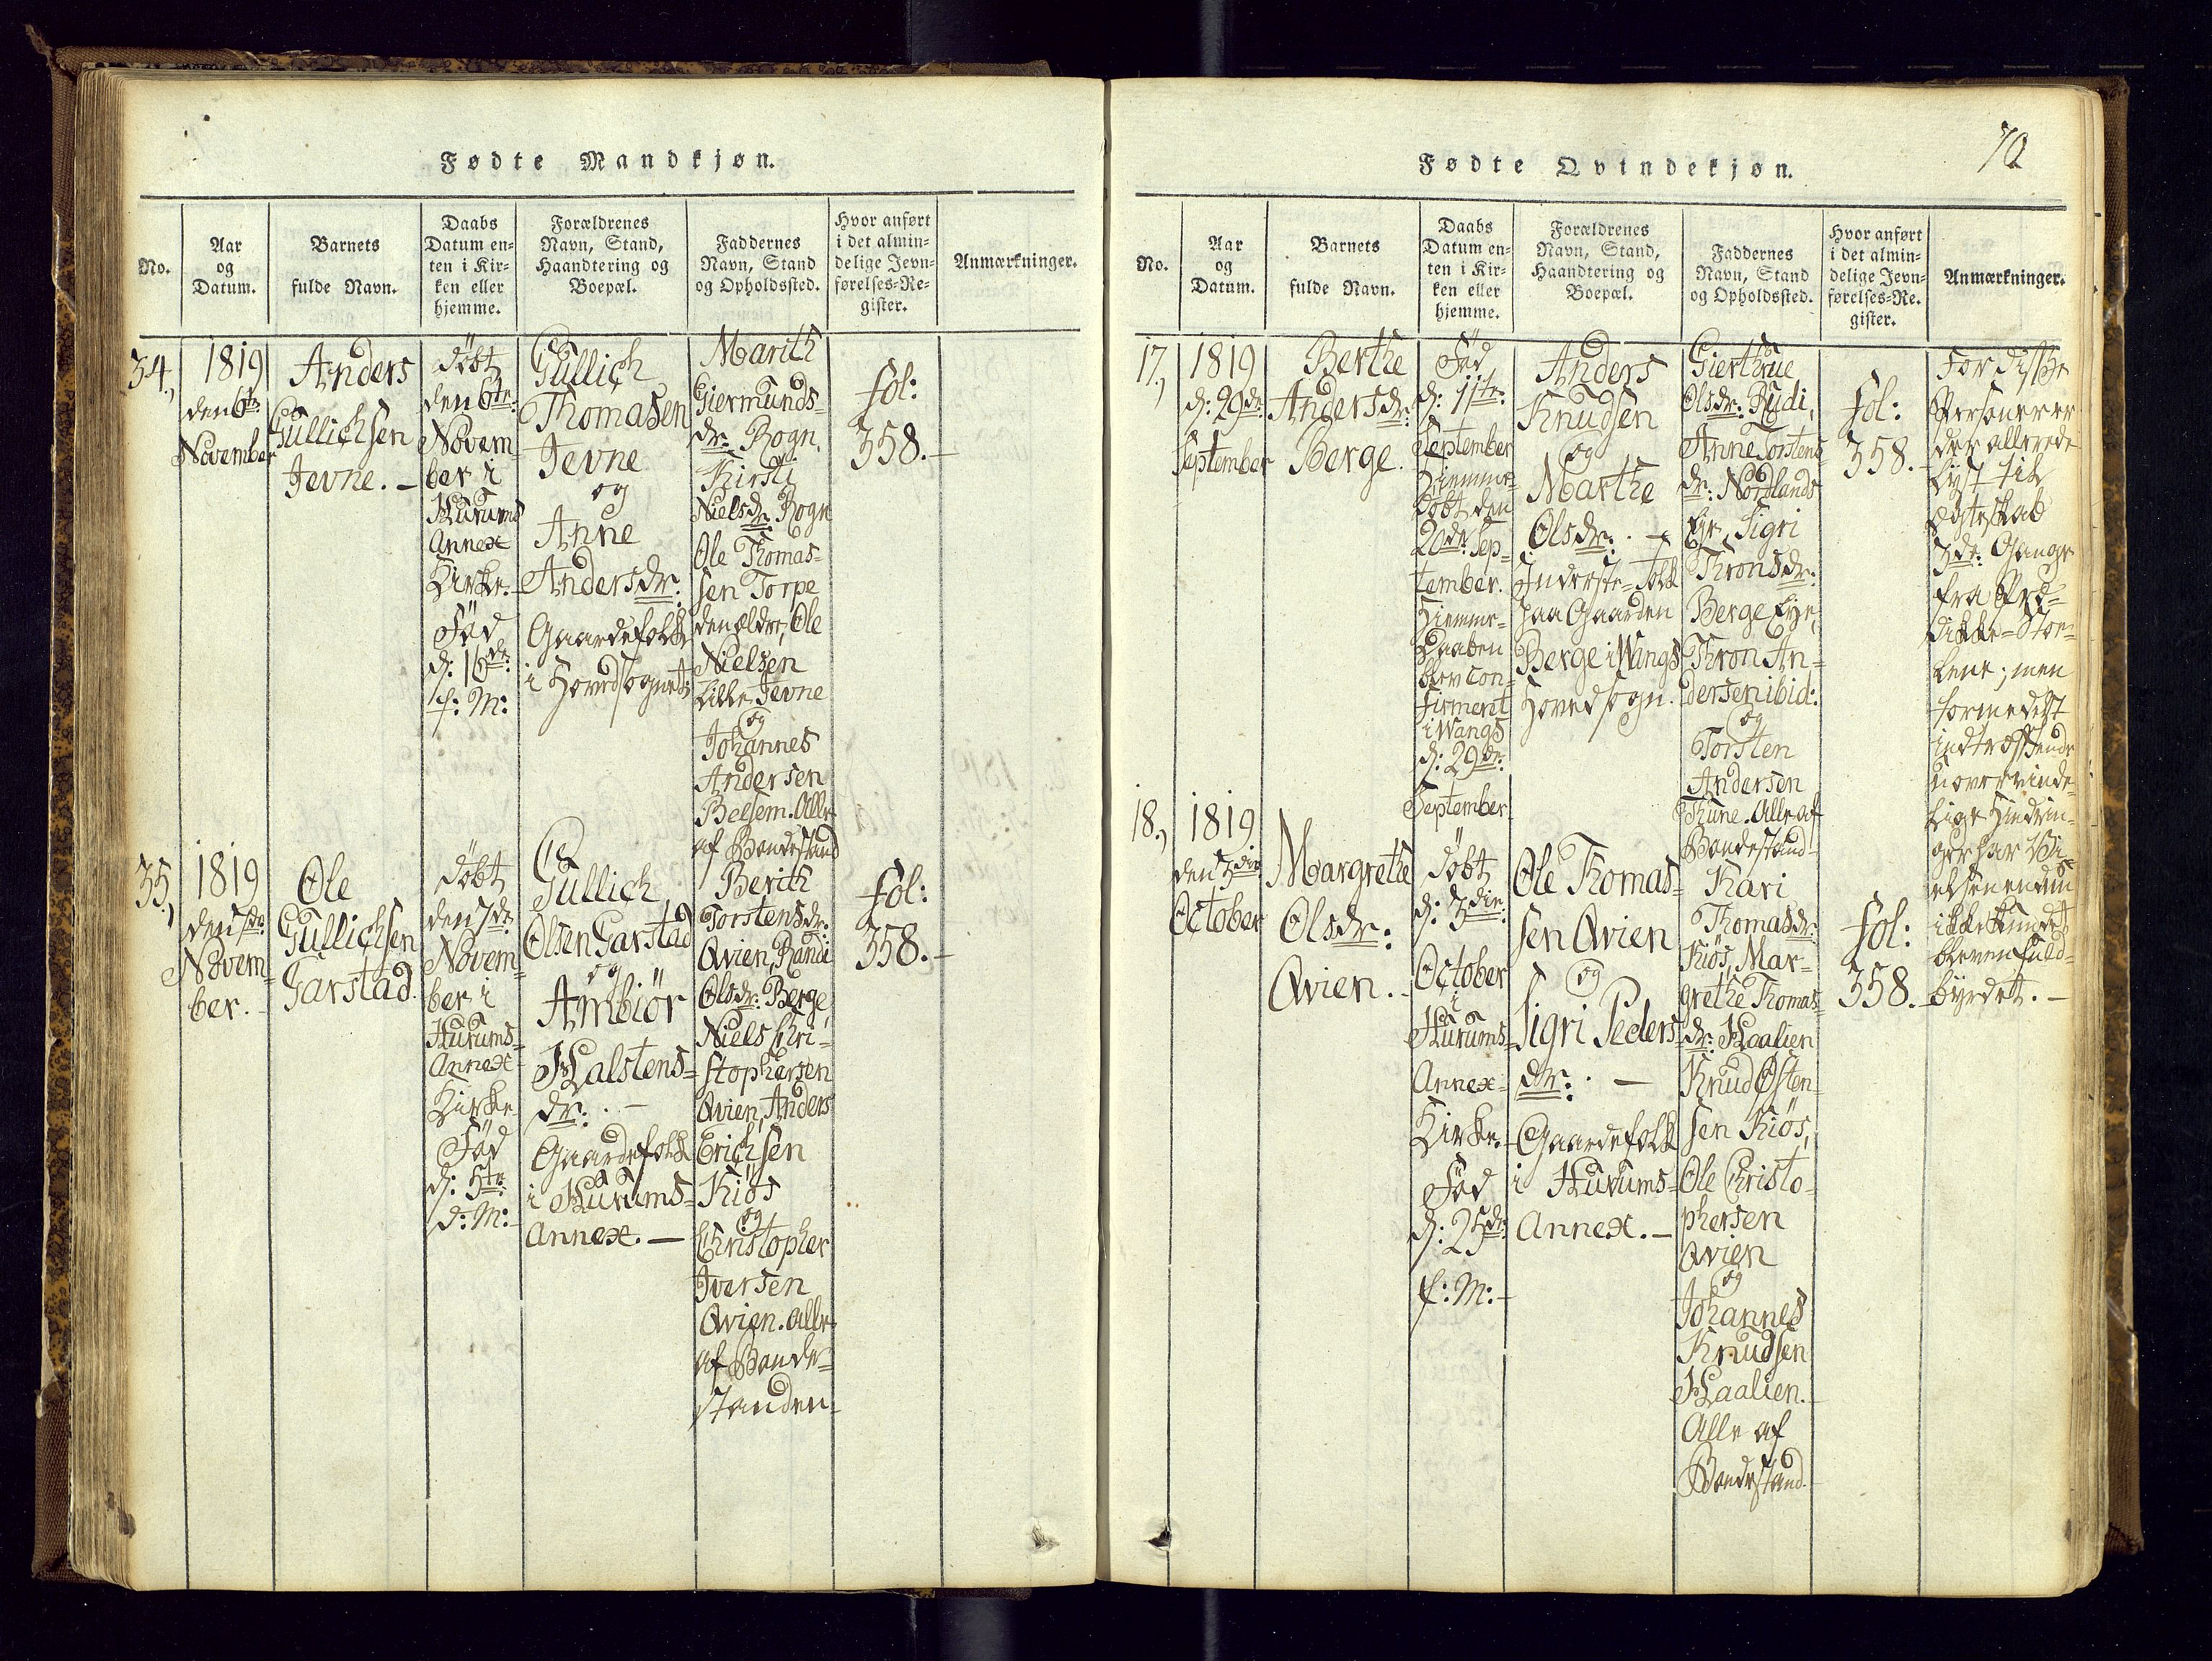 Fødte Mandkjøn.
No.
Aar
og
Datum.
Barnets
fulde Navn.
Daabs
Datum en-
ten i Kir-
ken eller
hjemme.
Forældrenes
Navn, Stand,
Haandtering og
Boepæl.
Faddernes
Navn, Stand
og Opholdssted.
Hvor anført
i det almin-
delige Jevn-
førelses-Re-
gister.
Anmærkninger.
34.,
1819
den 6te
November
Anders
Gullichsen
Jevne. -
döbt
den 6te:
Novem
ber i
Hurums
Annex
Kirke.
Fød
d: 16de:
f: M:
Gullich
Thomasen
Jevne
og
Anne
Andersdr:
Gaardefolk
i Hovedsognet:
Marith
Giermunds-
dr: Rogn,
Kirsti
Nielsdr: Rogn
Ole Thomas-
sen Torpe
den ældre, Ole
Nielsen
Lille Jevne
og
Johannes
Andersen
Belsem. Alle
af Bondestand
fol:
358. -
35.,
1819
den 7de:
Novem-
ber. -
Ole
Gullichsen
Garstad.
döbt
den 7de
Novem-
ber i
Hurums-
Annex-
Kirke
Fød
d: 5te
d: M: -
Gullich
Olsen Garstad
og
Ambiör
Halstens-
dr: . -
Gaardefolk
i Hurums-
Annex. -
Berith
Torstensdr:
Qvien, Randi
Olsdr: Berge,
Niels Chri-
stophersen
Qvien, Anders
Erichsen
Kiös
og
Christopher
Iversen
Qvien. Alle
af Bonde-
standen-
fol:
358. -
70
Fødte Qvindekjøn.
No.
Aar
og
Datum.
Barnets
fulde Navn.
Daabs
Datum en-
ten i Kir-
ken eller
hjemme.
Forældrenes
Navn, Stand,
Haandtering og
Boepæl.
Faddernes
Navn, Stand
og Opholdssted.
Hvor anført
i det almin-
delige Jevn-
førelses-Re-
gister.
Anmærkninger.
17.,
1819
d: 29de
September
Berthe
Andersdr:
Berge.
Fød
d: 11te:
September
Hiemme-
döbt den
20de Sep-
tember.
Hiemme-
Daaben
blev con-
firmeret
i Wangs
d: 29de:
September
Anders
Knudsen
og
Marthe
Olsdr: . -
Inderste-folk
paa Gaarden
Berge i Wangs
Hovedsogn.
Gierthrue
Olsdr: Rudi,
Anne Torstens-
dr: Nordlands
Eye, Sigri
Thronsdr:
Berge Eye,
Thron An-
dersen ibid:
og
Torsten
Andersen
Thune. Alle af
Bondestand-
fol:
358. -
For disse
Personer er
der allerede
lyst til
Ægteskab
3de: Gange
fra Præ-
dike-Sto-
lene; men
formedelst
indtræffende
uovervinde-
lige Hindrin-
ger har Vi-
elsen endnu
ikke kundet
bleven fuld-
byrdet. -
18.,
1819
den 3die
October
Margrethe
Olsdr:
Qvien. -
döbt
d: 3die:
October
i
Hurums-
Annex-
Kirke. -
Fød
d: 25de
f: M: -
Ole Thomas-
sen Qvien
og
Sigri Peders-
dr: . -
Gaardefolk
i Hurums-
Annex. -
Kari
Thomasdr:
Kiös, Mar-
grethe Thomas-
dr: Haalien
Knud Østen-
sen Kiös,
Ole Christo-
phersen
Qvien
og
Johannes
Knudsen
Haalien. -
Alle af
Bondestand. -
fol:
358. -